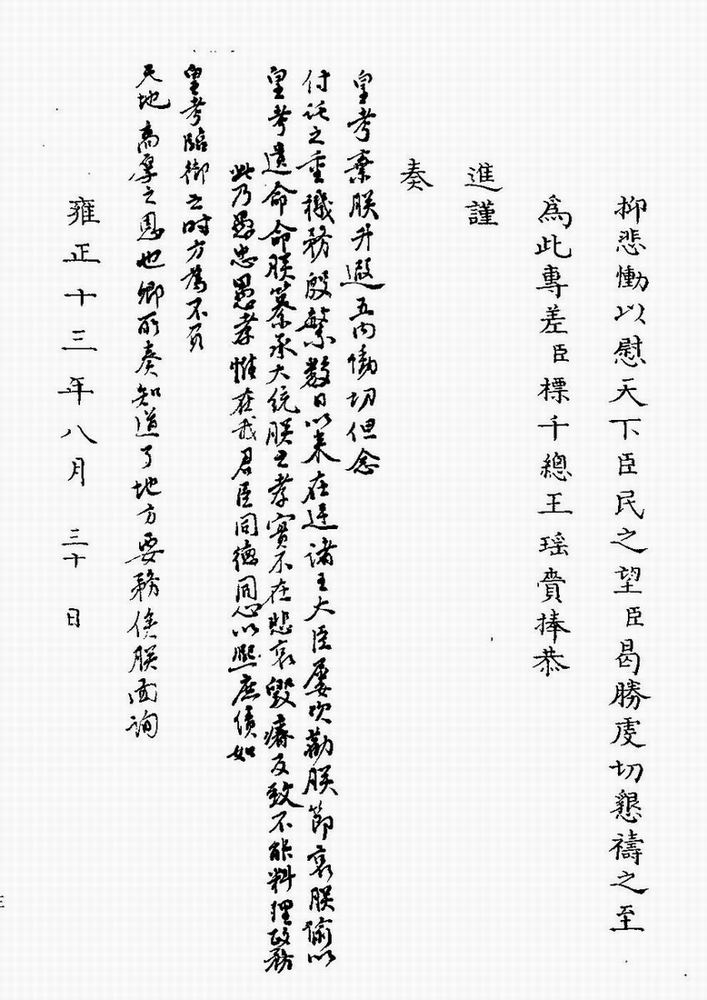 抑悲慟以慰天下臣民之望臣曷勝虔切懇禱之至
為此專差臣標千總王瑶賫捧恭
進謹
奏
皇考棄朕升遐五內慟切但念
付託之重機務殷繁數日以來在廷諸王大臣屢次勸朕節哀朕喻以
皇考遺命命朕纂承大統朕之孝實不在悲哀毀瘠反致不能料理政務
此乃愚忠愚孝惟在我君臣同德同心以熙庶績如
皇考臨御之時方為不負
天地高厚之恩也卿所奏知道了地方要務俟朕面詢
雍正十三年八月三十日